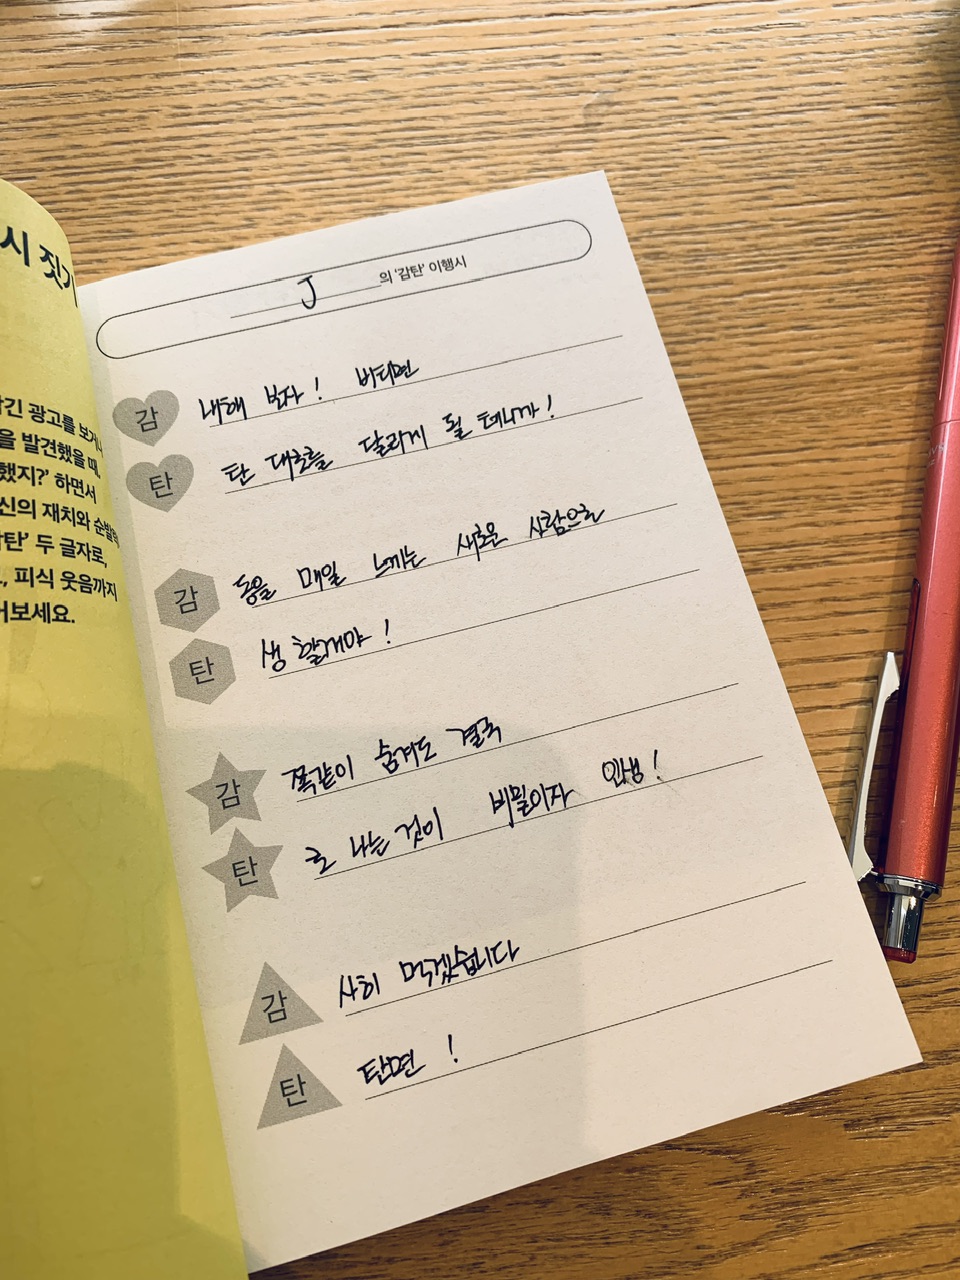 시 짓기
긴 광고를 보거나
을 발견했을 때,
했지?’ 하면서
신의 재치와 순발력
탄’ 두 글자로,
, 피식 웃음까지
어보세요.
J 의 ‘감탄’ 이행시
감 내해 보자! 버티면
탄 탄 대로를 달리게 될 테니까!
감 동을 매일 느끼는 새로운 사람으로
탄 생 할거야!
감 쪽같이 숨겨도 결국
탄 로 나는 것이 비밀이자 인생!
감 사히 먹겠습니다
탄 탄면!